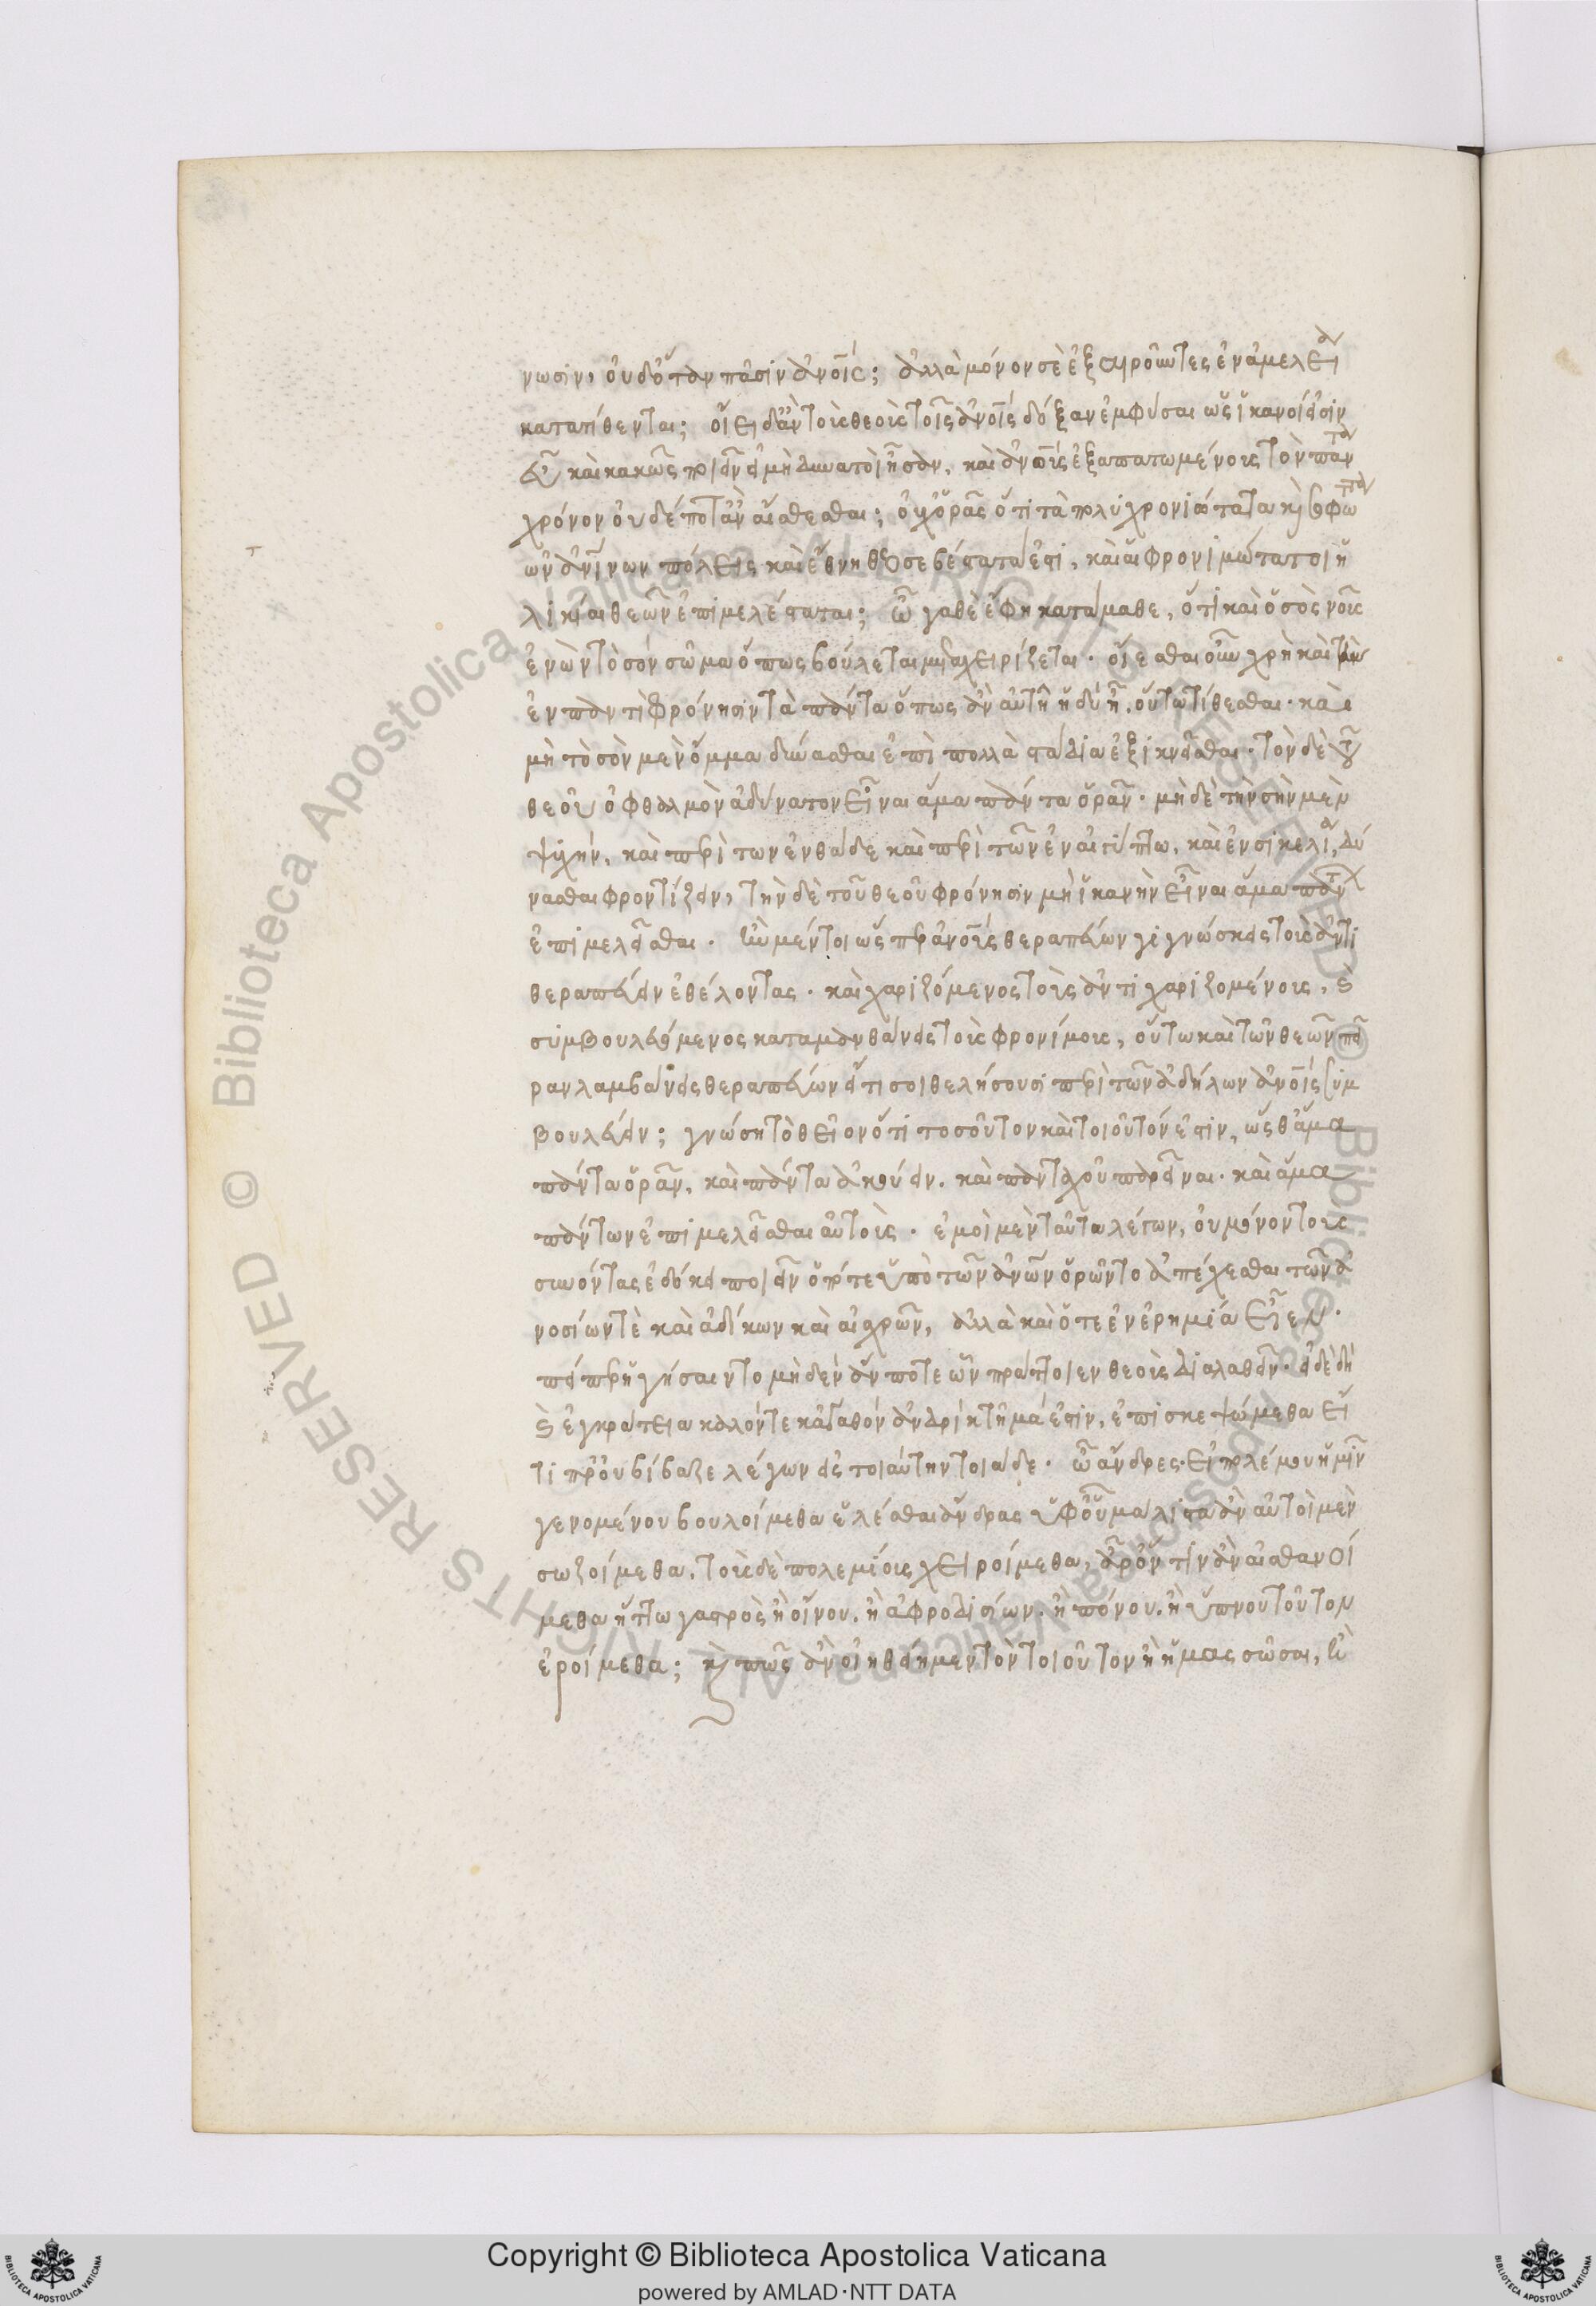 νωσιν, οὐδ' ὅταν πᾶσιν ἀνοις; ἀλλὰ μόνον σὲ ἐξαιροῦντες ἐν ἀμελεία
κατατίθενται; οἴει δ' ἂν τοὺς θεοὺς τοῖς ἀνοις δόξαν ἐμφῦσαι ὡς ἱκανοί εἰσιν
εὖ καὶ κακῶς ποιεῖν εἰ μὴ δυνατοὶ ἦσαν, καὶ ἀνους ἐξαπατωμένους τὸν πάντα
χρόνον οὐδέποτ' ἂν αἴσθεσθαι; οὐχ ὁρᾶς ὅτι τὰ πολυχρονιώτατα καὶ σοφώτατα
τῶν ἀνίνων πόλεις καὶ ἔθνη θεοσεβέστατά ἐστι, καὶ αἱ φρονιμώταται ἡ
λικίαι θεῶν ἐπιμελέσταται; ὦ γαθὲ ἔφη κατάμαθε, ὅτι καὶ ὁ σὸς νοῦς
ἐνὼν τὸ σὸν σῶμα ὅπως βούλεται μεταχειρίζεται. οἴεσθαι οὖν χρὴ καὶ τὴν
ἐν παντὶ φρόνησιν τὰ πάντα ὅπως ἂν αὐτῆ ἡδὺ ἦ, οὕτω τίθεσθαι. καὶ
μὴ τὸ σὸν μὲν ὄμμα δύνασθαι ἐπὶ πολλὰ στάδια ἐξικνεῖσθαι. τὸν δὲ τοῦ
θεοῦ ὀφθαλμὸν ἀδύνατον εἶναι ἅμα πάντα ὁρᾶν. μὴ δὲ τὴν σὴν μὲν
ψυχὴν, καὶ περὶ των ἐνθάδε καὶ περὶ τῶν ἐν αἰγύπτω, καὶ ἐν σικελία, δύ
νασθαι φροντίζειν, τὴν δὲ τοῦ θεοῦ φρόνησιν μὴ ἱκανὴν εἶναι ἅμα πάντων
ἐπιμελεῖσθαι. ἢν μέντοι ὥσπερ ἀνους θεραπεύων γιγνώσκεις τοὺς ἀντι
θεραπεύειν ἐθέλοντας. καὶ χαριζόμενος τοὺς ἀντιχαριζομένους, καὶ
συμβουλευόμενος καταμανθάνεις τοὺς φρονίμους, οὕτω καὶ τῶν θεῶν πεῖ
ραν λαμβάνεις θεραπεύων εἴ τι σοι θελήσουσι περὶ τῶν ἀδήλων ἀνοις συμ
βουλεύειν; γνώση τὸ θεῖον ὅτι τοσοῦτον καὶ τοιοῦτόν ἐστιν, ὥσθ' ἅμα
πάντα ὁρᾶν, καὶ πάντα ἀκούειν. καὶ πανταχοῦ παρεῖναι. καὶ ἅμα
πάντων ἐπιμελεῖσθαι αὐτοὺς. ἐμοὶ μὲν ταῦτα λέγων, οὐ μόνον τοὺς
συνόντας ἐδόκει ποιεῖν ὁπότε ὑπὸ τῶν ἀνων ὁρῶντο ἀπέχεσθαι τῶν ἀ
νοσίων τὲ καὶ ἀδίκων καὶ αἰσχρῶν, ἀλλὰ καὶ ὅτε ἐν ἐρημία εἶεν.
ἐπείπερ ἡγήσαιντο μηδὲν ἄν ποτε ὧν πράττοιεν θεοὺς διαλαθεῖν. εἰ δὲ δὴ
καὶ ἐγκράτεια καλόν τε κἀγαθὸν ἀνδρὶ κτῆμά ἐστιν, ἐπισκεψώμεθα εἴ
τι προὐβίβαζε λέγων εἰς τοιαύτην τοιάδε. ὦ ἄνδρες. εἰ πολέμου ἡμῖν
γενομένου βουλοίμεθα ἑλέσθαι ἄνδρας ὑφ' οὗ μάλιστα ἂν αὐτοὶ μὲν
σωζοίμεθα, τοὺς δὲ πολεμίους χειροίμεθα, ἆρ' ὅν τιν' ἂν αἰσθανοί
μεθα ἥττω γαστρὸς ἢ οἴνου, ἢ ἀφροδισίων. ἢ πόνου, ἢ ὕπνου τοῦτον
ἑροίμεθα; καὶ πῶς ἂν οἰηθείημεν τὸν τοιοῦτον ἢ ἡμας σῶσαι, ἢ